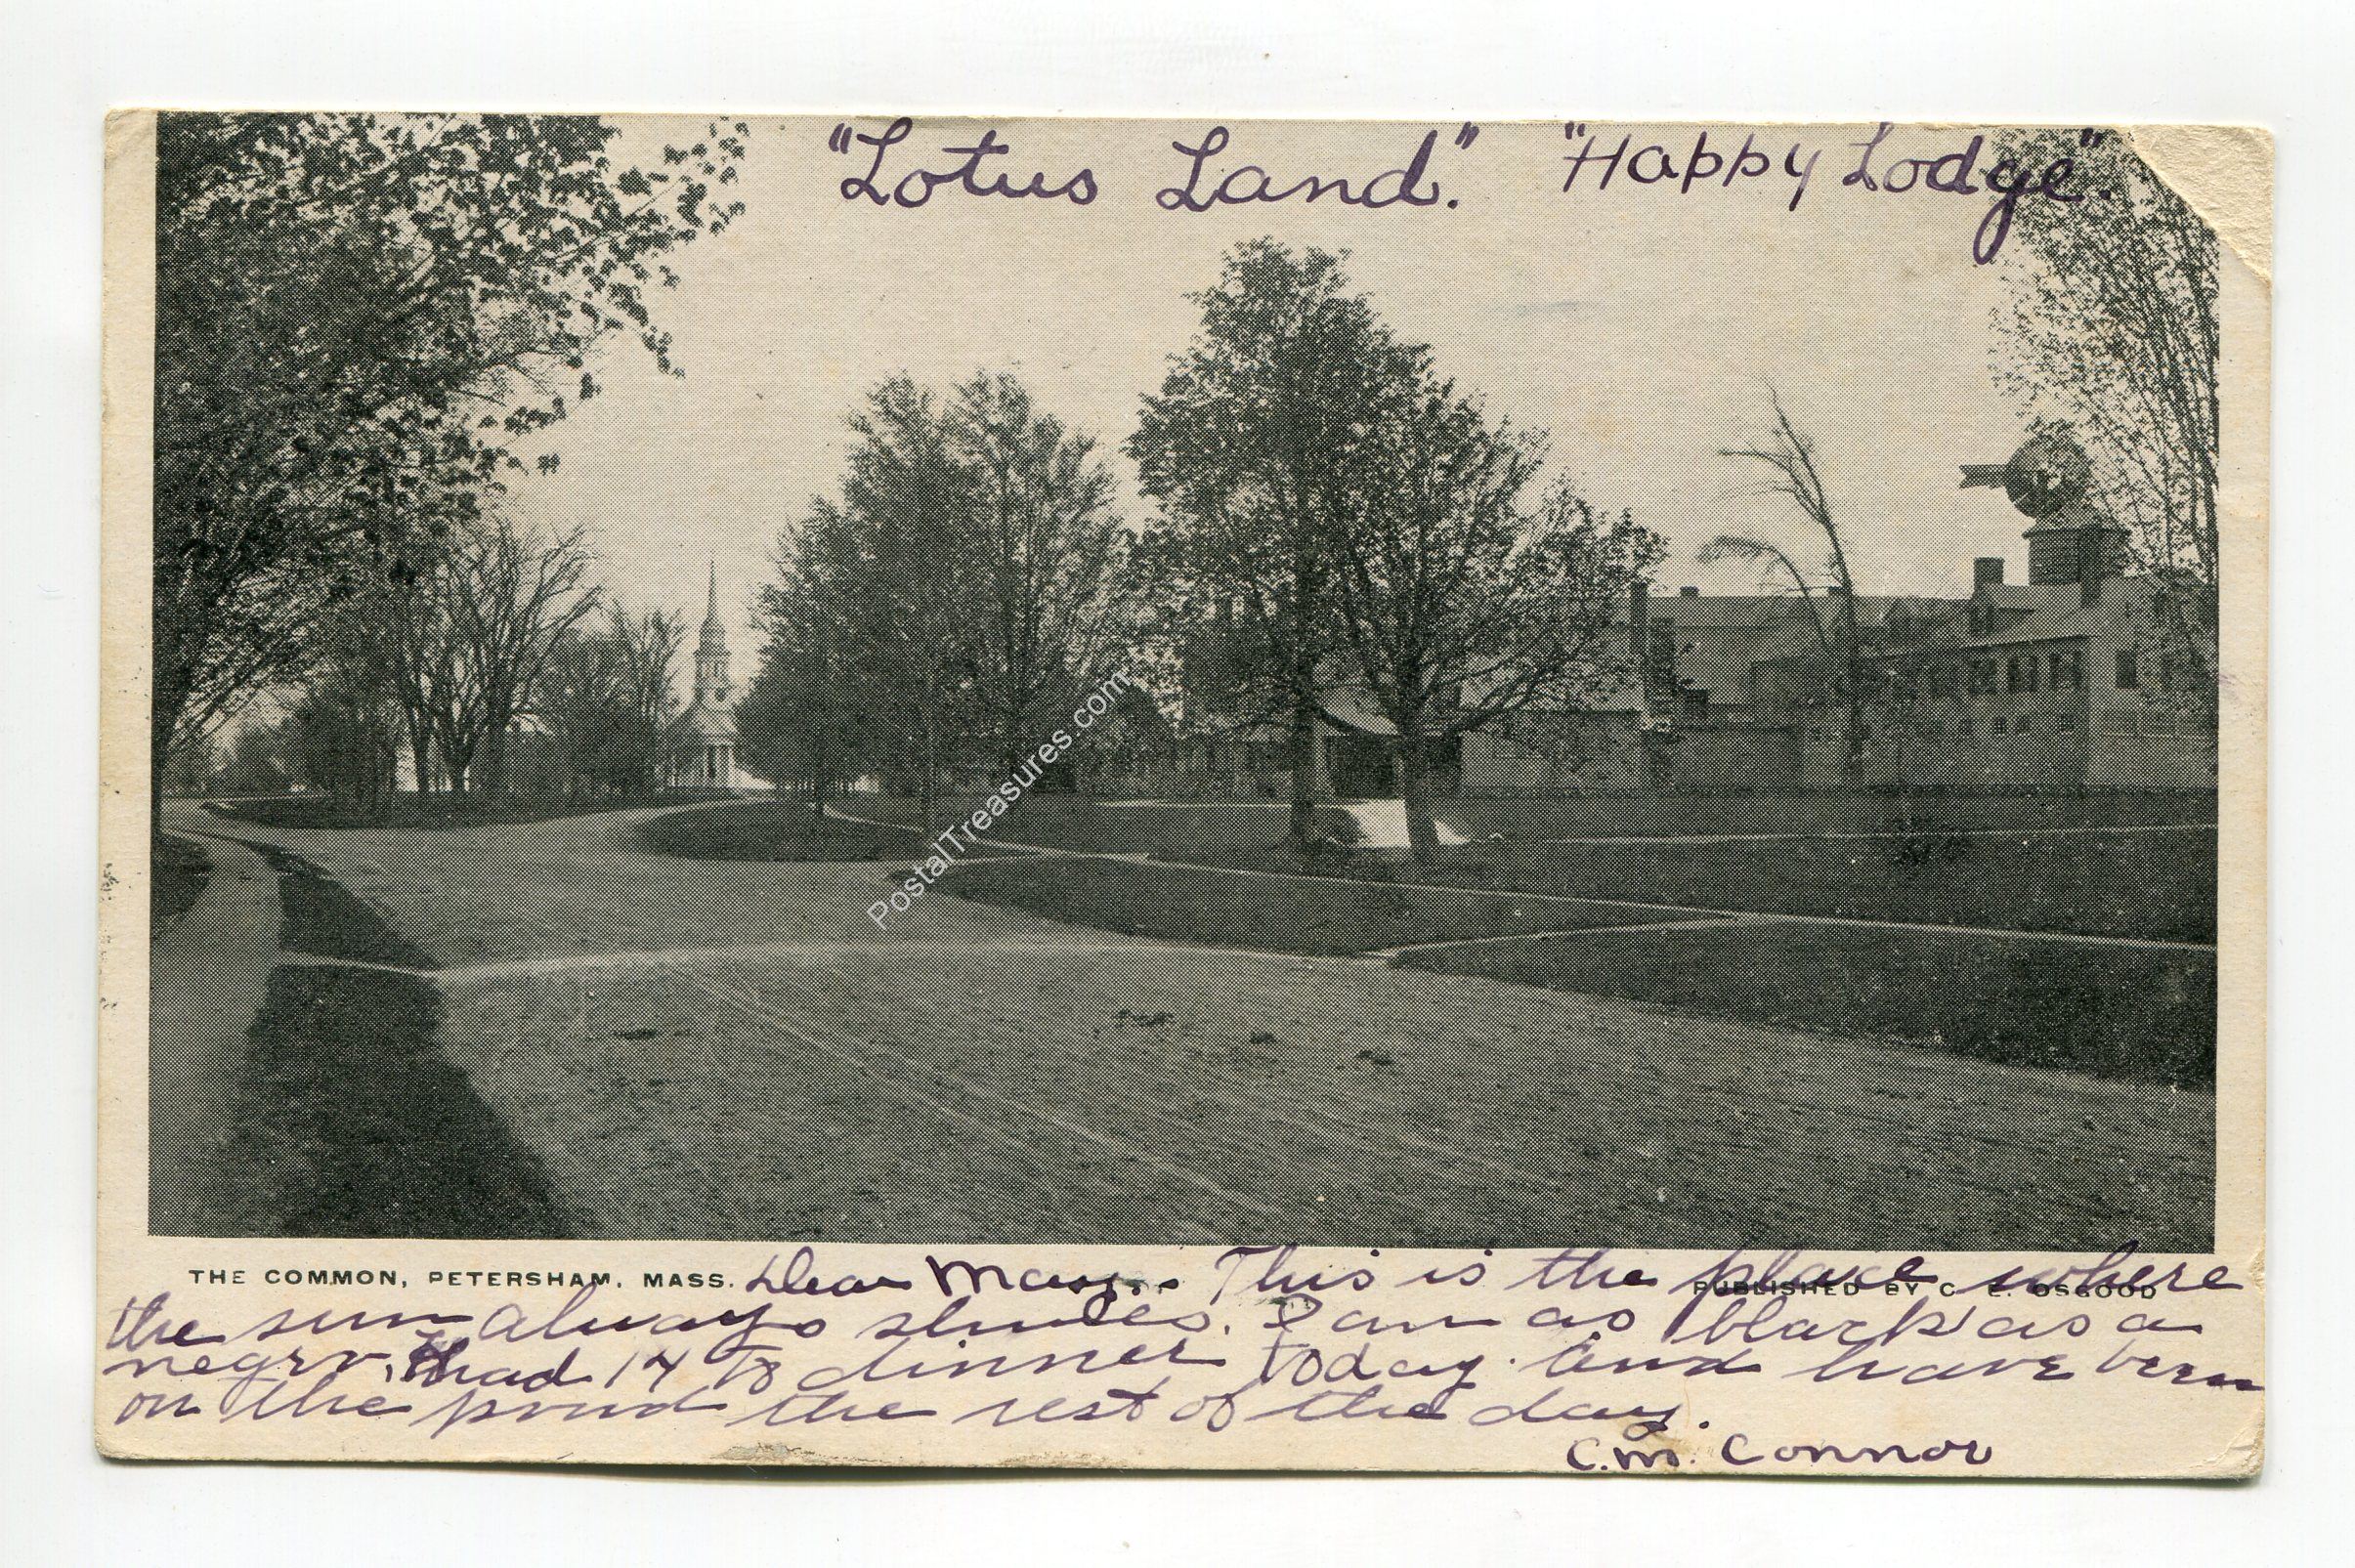 "Lotus Land." "Happy Lodge".
PostalTreasures.com
THE COMMON, PETERSHAM, MASS.
PUBLISHED BY C. E. OSGOOD
Dear May. This is the place where
the sun always shines. I am as black as a
negro. had 14 to dinner today. and have been
on the pond the rest of the day.
C.M. Connor